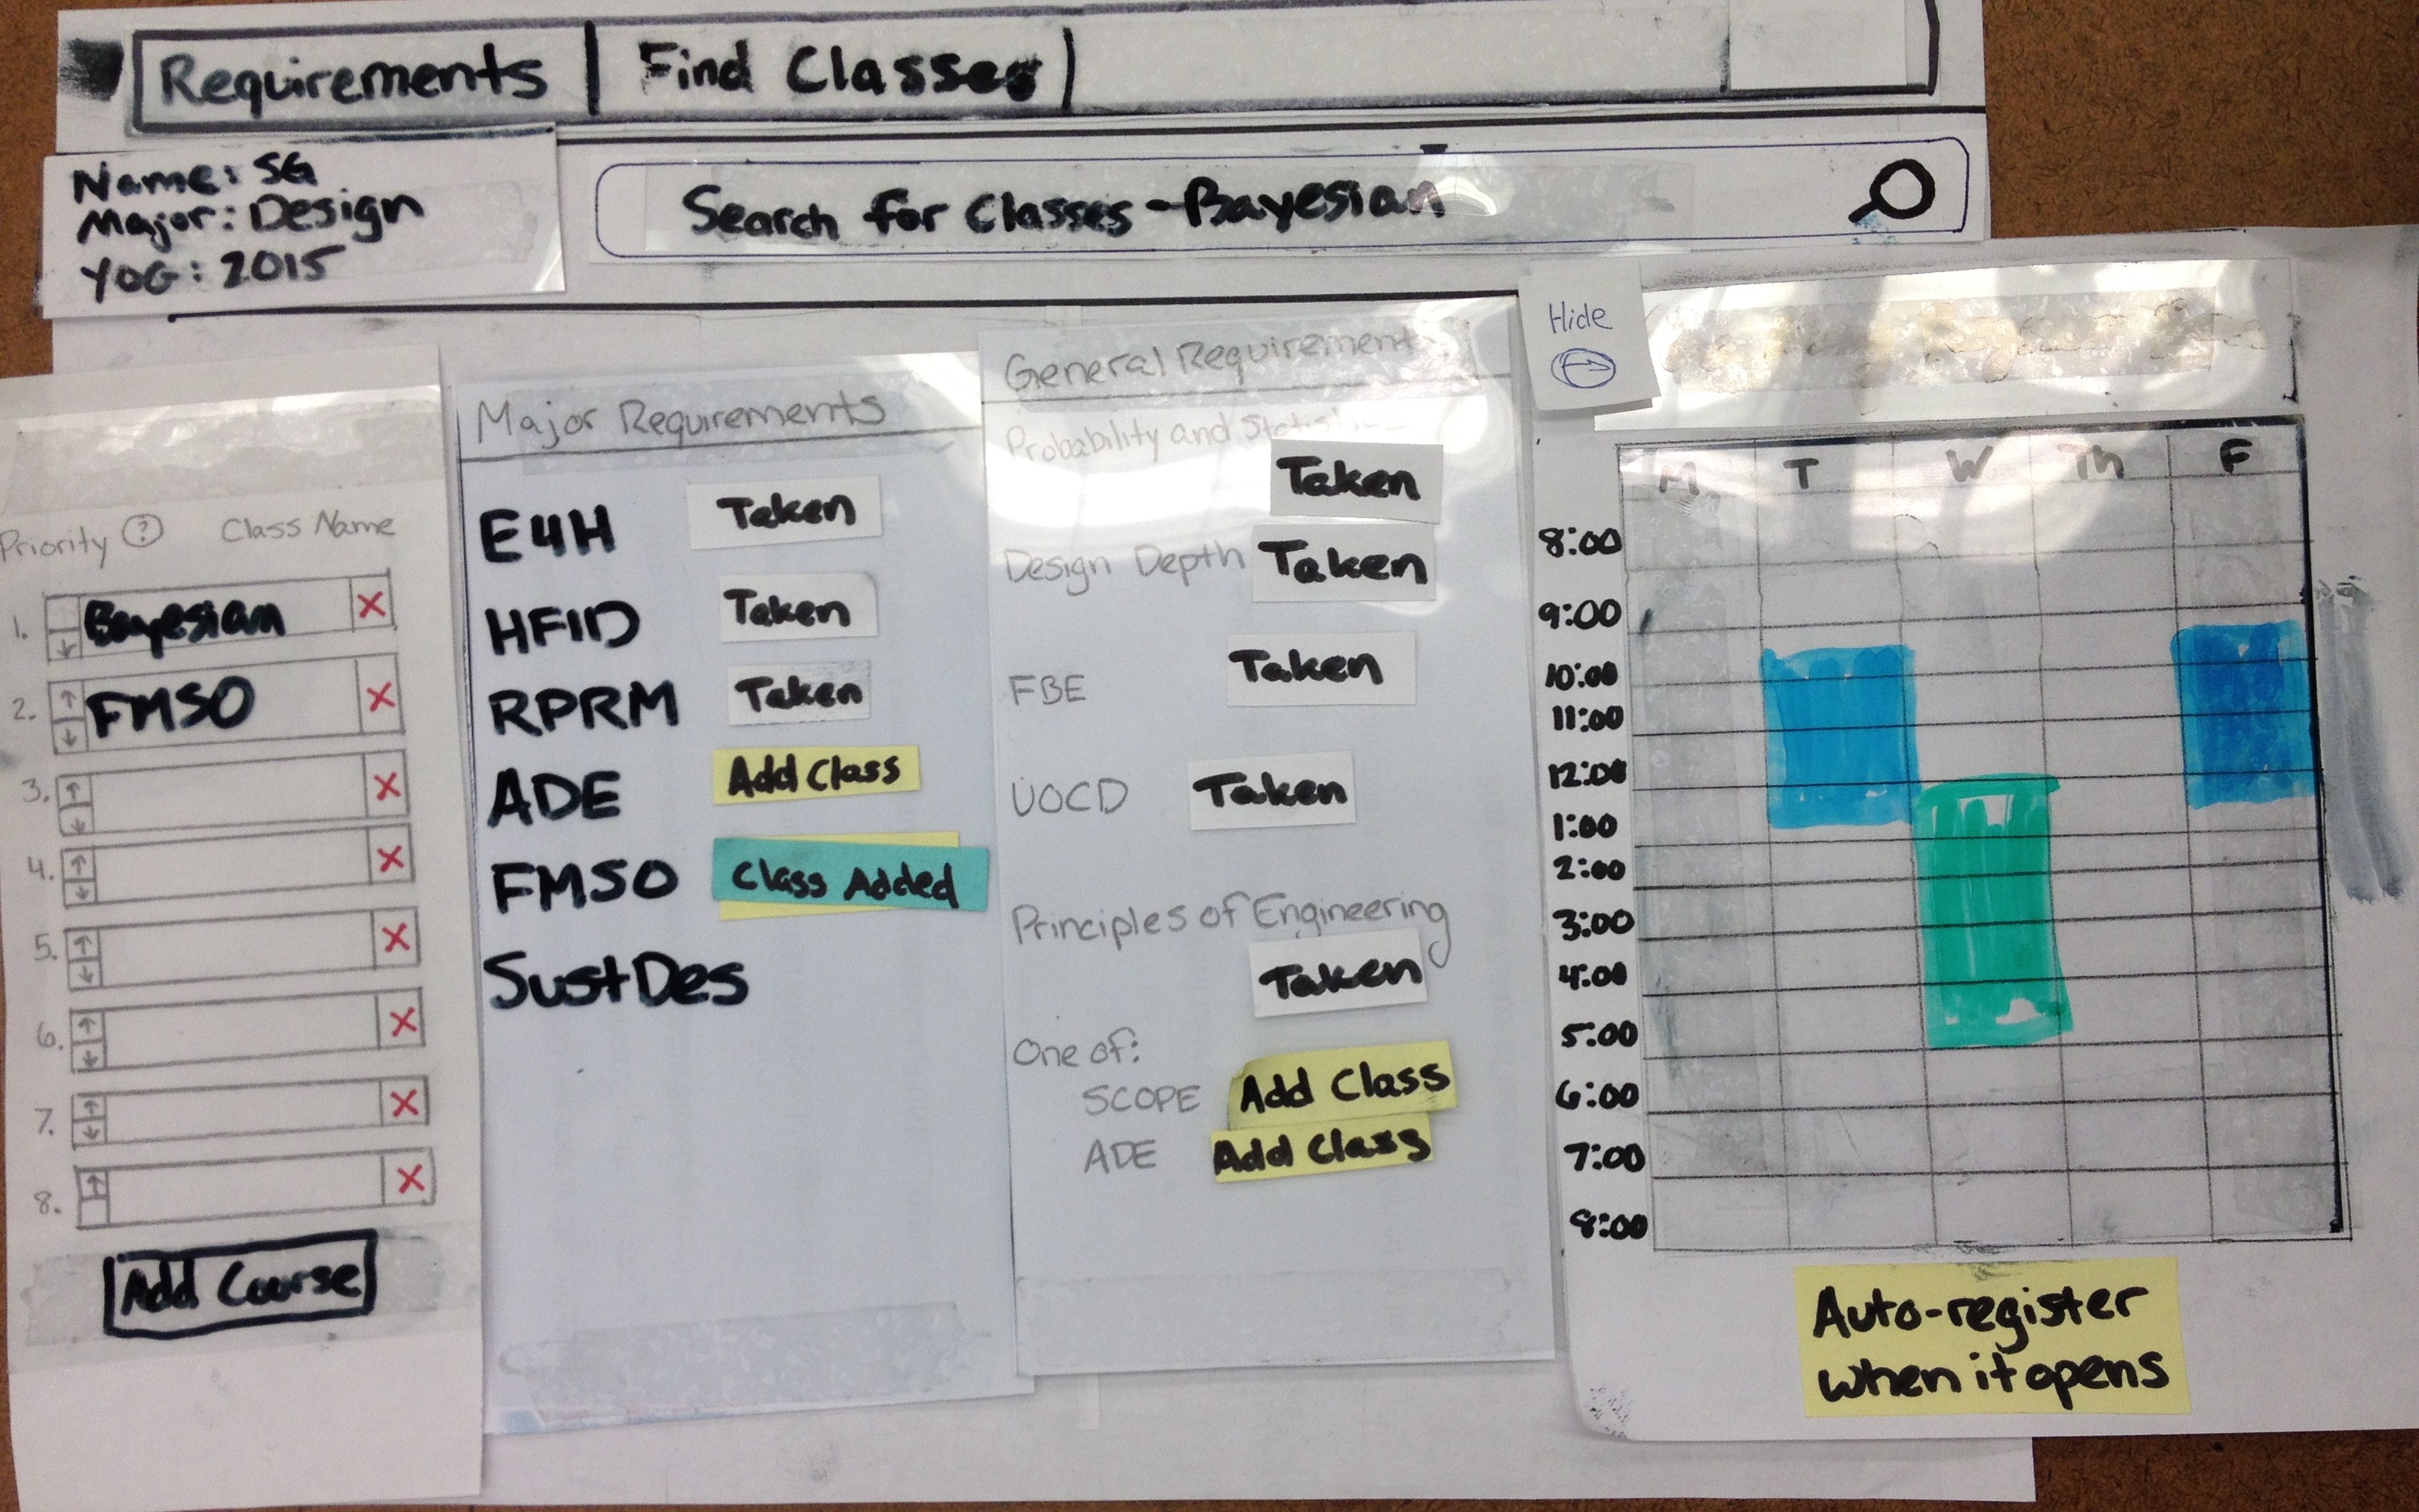 Requirements | Find Classes
Name: SG
Major: Design
YOG: 2015
Search for Classes - Bayesian
Priority ? Class Name
1. Bayesian X
2. FMSO X
3. X
4. X
5. X
6. X
7. X
8. X
Add Course
Major Requirements
E4H Taken
HFID Taken
RPRM Taken
ADE Add Class
FMSO Class Added
SustDes
General Requirement
Probability and
Taken
Design Depth Taken
FBE Taken
UOCD Taken
Principles of Engineering
Taken
One of:
SCOPE Add Class
ADE Add Class
Hide
M T W Th F
8:00
9:00
10:00
11:00
12:00
1:00
2:00
3:00
4:00
5:00
6:00
7:00
8:00
Auto-register
when it opens